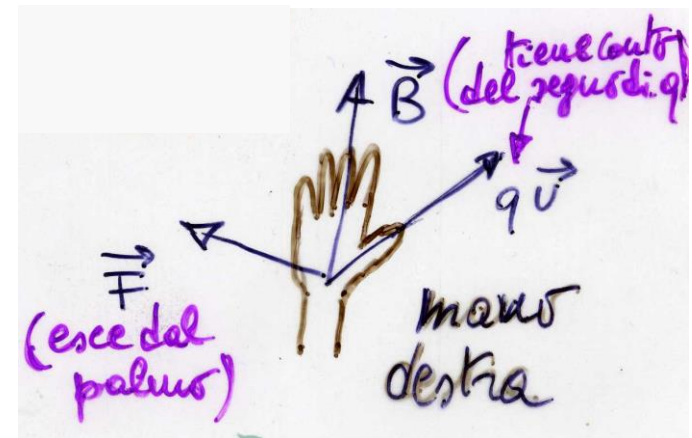 (tiene conto
del segno di q)
B
q v
F
(esce dal
palmo)
mano
destra